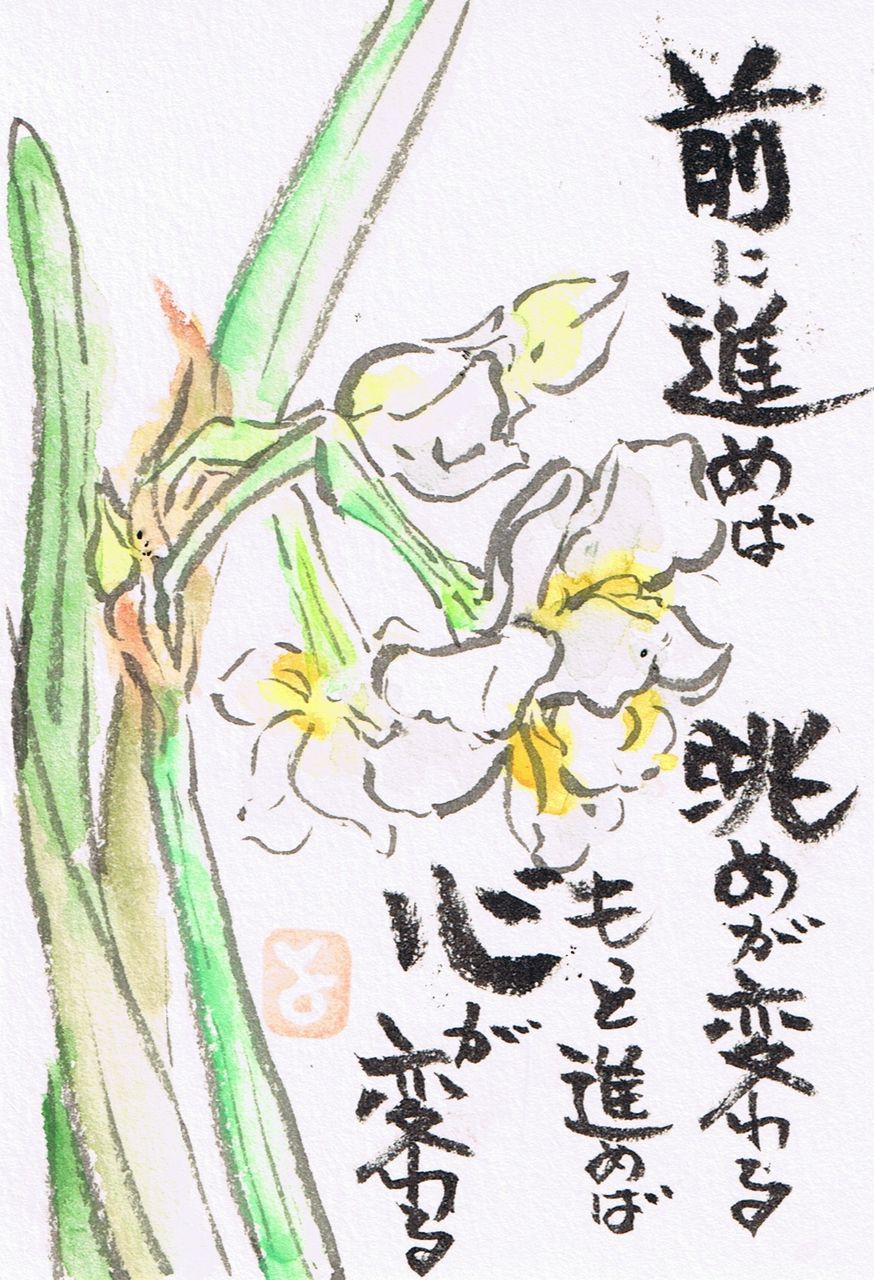 前に進めば
眺めが変わる
もっと進めば
心が変わる